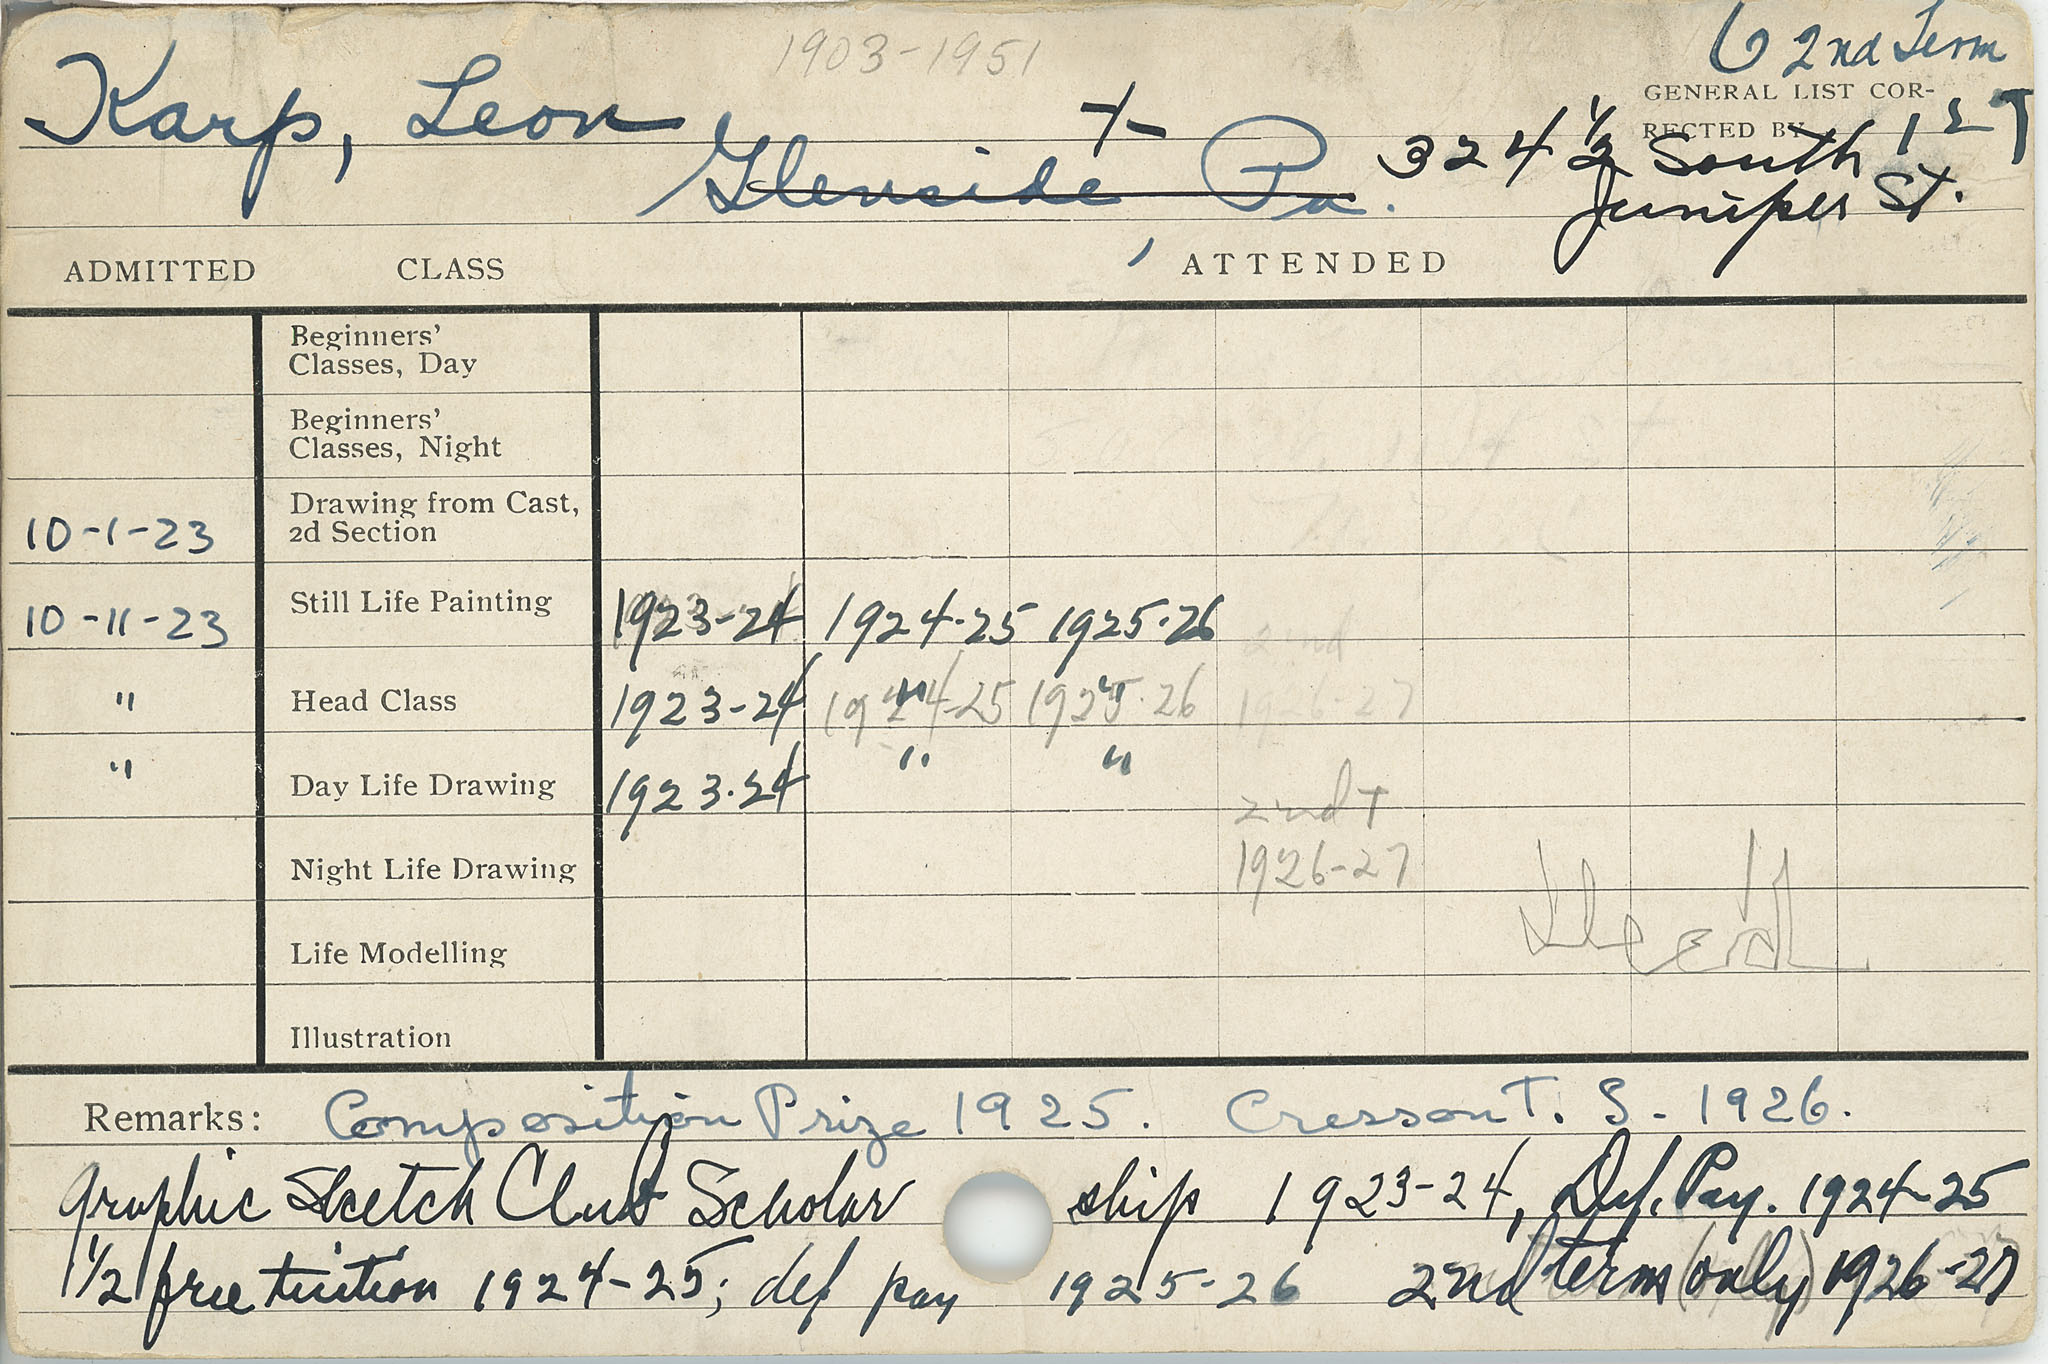 1903-1951
6 2nd Term
GENERAL LIST COR-
RECTED BY
Karp, Leon
Glenside Pa.
324 1/2 South
Juniper St.
ADMITTED CLASS ATTENDED
Beginners'
Classes, Day
Beginners'
Classes, Night
10-1-23 Drawing from Cast,
2d Section
10-11-23 Still Life Painting 1923-24 1924-25 1925-26 2nd
" Head Class 1923-24 1924-25 1925-26 1926-27
" Day Life Drawing 1923-24 " "
2nd T
Night Life Drawing 1926-27
Life Modelling
Illustration
Remarks: Composition Prize 1925. Cresson T. S. 1926.
Graphic Sketch Club Scholar ship 1923-24, Def. Pay. 1924-25
1/2 free tuition 1924-25; def pay 1925-26 2nd term (only) 1926-27